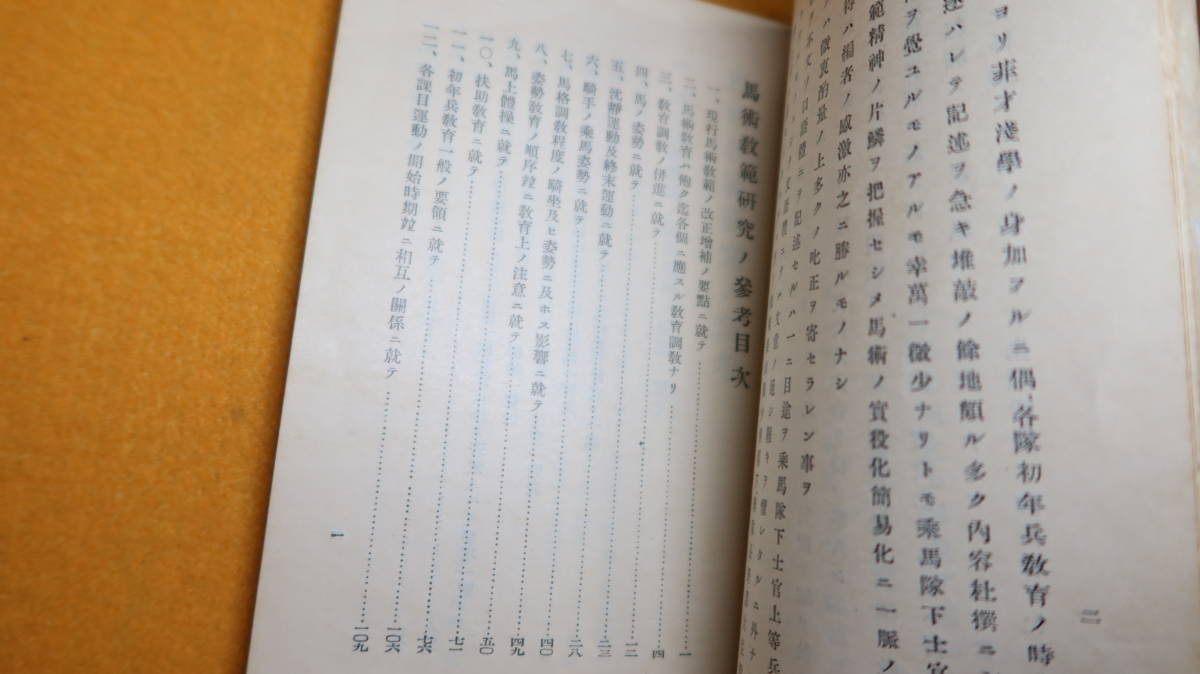 ヨリ菲才淺學ノ身加フルニ偶、各隊初年兵教育ノ時
ハレテ記述ヲ急キ堆敲ノ餘地頗ル多ク内容杜撰ニ
ヲ覺ユルモノアルモ幸萬一微少ナリトモ乘馬隊下士官
範精神ノ片鱗ヲ把握セシメ馬術ノ實役化簡易化ニ一脈ノ
得ハ編者ノ感激亦之ニ勝ルモノナシ
ハ微衷酌量ノ上多クノ叱正ヲ寄セラレン事ヲ
ヲ記述セルハ一ニ目途ヲ乘馬隊下士官上等兵
二
馬術教範研究ノ參考目次
一、現行馬術教範ノ改正增補ノ要點ニ就テ……一
二、馬術教育ハ飽ク迄各個ニ應スル教育調教ナリ……四
三、教育調教ノ併進ニ就テ……一二
四、馬ノ姿勢ニ就テ……二三
五、沈靜運動及終末運動ニ就テ……二八
六、騎手ノ乘馬姿勢ニ就テ……四〇
七、馬格調教程度ノ騎坐及ヒ姿勢ニ及ホス影響ニ就テ……四九
八、姿勢教育ノ順序竝ニ教育上ノ注意ニ就テ……五〇
九、馬上體操ニ就テ……七一
一〇、扶助教育ニ就テ……七六
一一、初年兵教育一般ノ要領ニ就テ……一〇六
一二、各課目運動ノ開始時期竝ニ相互ノ關係ニ就テ……一〇九
一